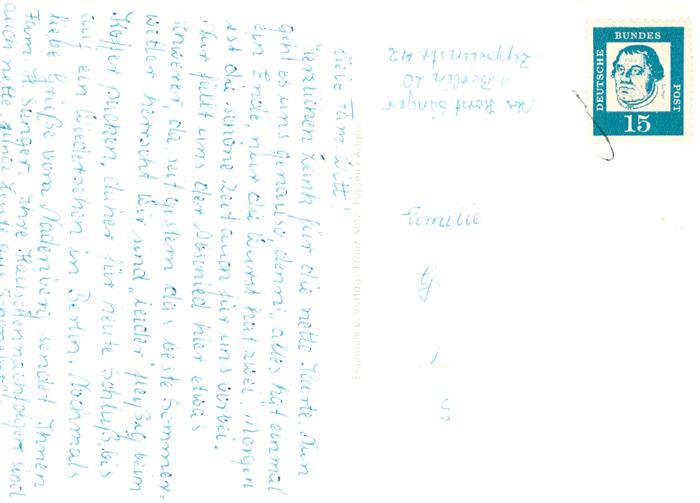 Liebe Fam. Witt!
Herzlichen Dank für die nette Karte. Nun
geht es uns genauso denn, alles hat einmal
ein Ende, nur die Wurst hat zwei. Morgen
ist die schöne Zeit auch für uns vorbei.
Nur fällt uns der Abschied hier etwas
schwerer, da seit gestern das beste Sommer-
wetter herrscht. Wir sind "leider" fleißig beim
Koffer packen, daher für heute Schluß, bis
auf ein Wiedersehen in Berlin. Nochmals
liebe Grüße vom sendet Ihnen
Fam. H. Sänger. Ihre Häuschennachfolger sind
auch nette Leute aus
Abs. Horst Sänger
1 Berlin 20
Zeppelinstr. 42
Eigentum u. Verlag: Franz Milz, Füssen / Allgäu
Familie
DEUTSCHE
BUNDES
POST
Luther
15